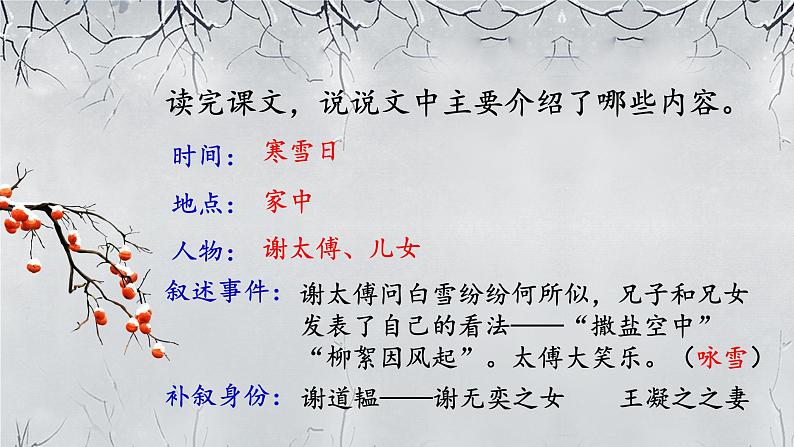 读完课文，说说文中主要介绍了哪些内容。
时间： 寒雪日
地点： 家中
人物： 谢太傅、儿女
叙述事件：谢太傅问白雪纷纷何所似，兄子和兄女
发表了自己的看法——“撒盐空中”
“柳絮因风起”。太傅大笑乐。（咏雪）
补叙身份：谢道韫——谢无奕之女 王凝之之妻